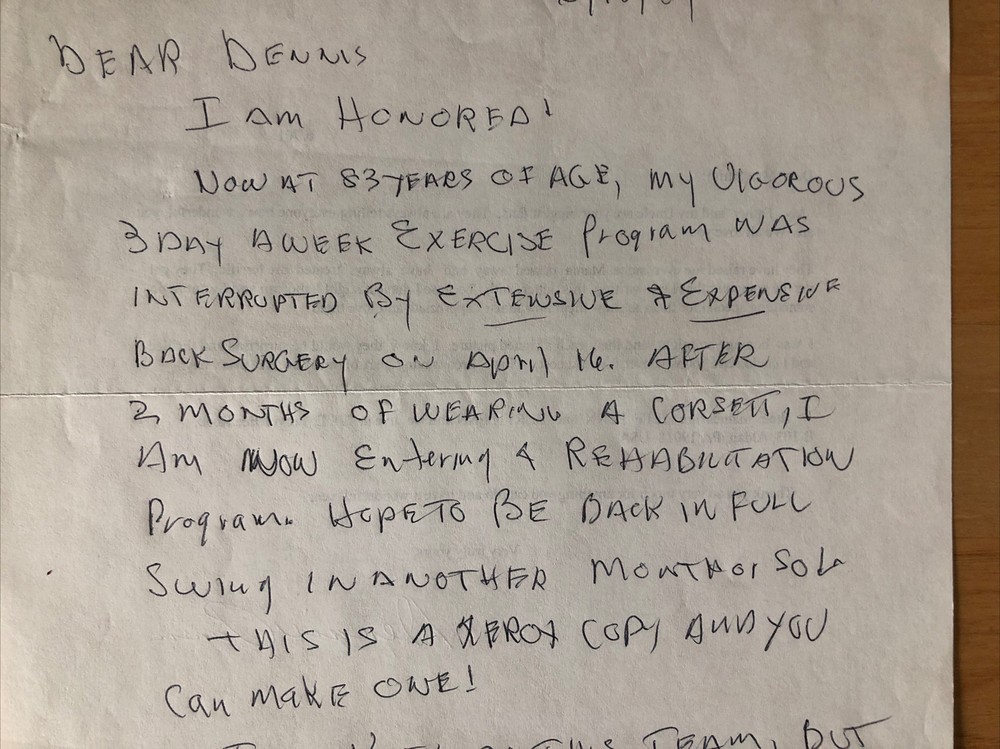 DEAR DENNIS
I AM HONORED!
NOW AT 83 YEARS OF AGE, MY VIGOROUS
3 DAY A WEEK EXERCISE Program WAS
INTERRUPTED By EXTENSIVE & EXPENSIVE
BACK SURGERY ON April 16. AFTER
2 MONTHS OF WEARING A CORSETT, I
Am NOW Entering A REHABILITATION
Program. HOPE TO BE BACK IN FULL
Swing IN ANOTHER MONTH or So
THIS IS A XEROX COPY AND YOU
Can make ONE!
THIS TEAM, BUT